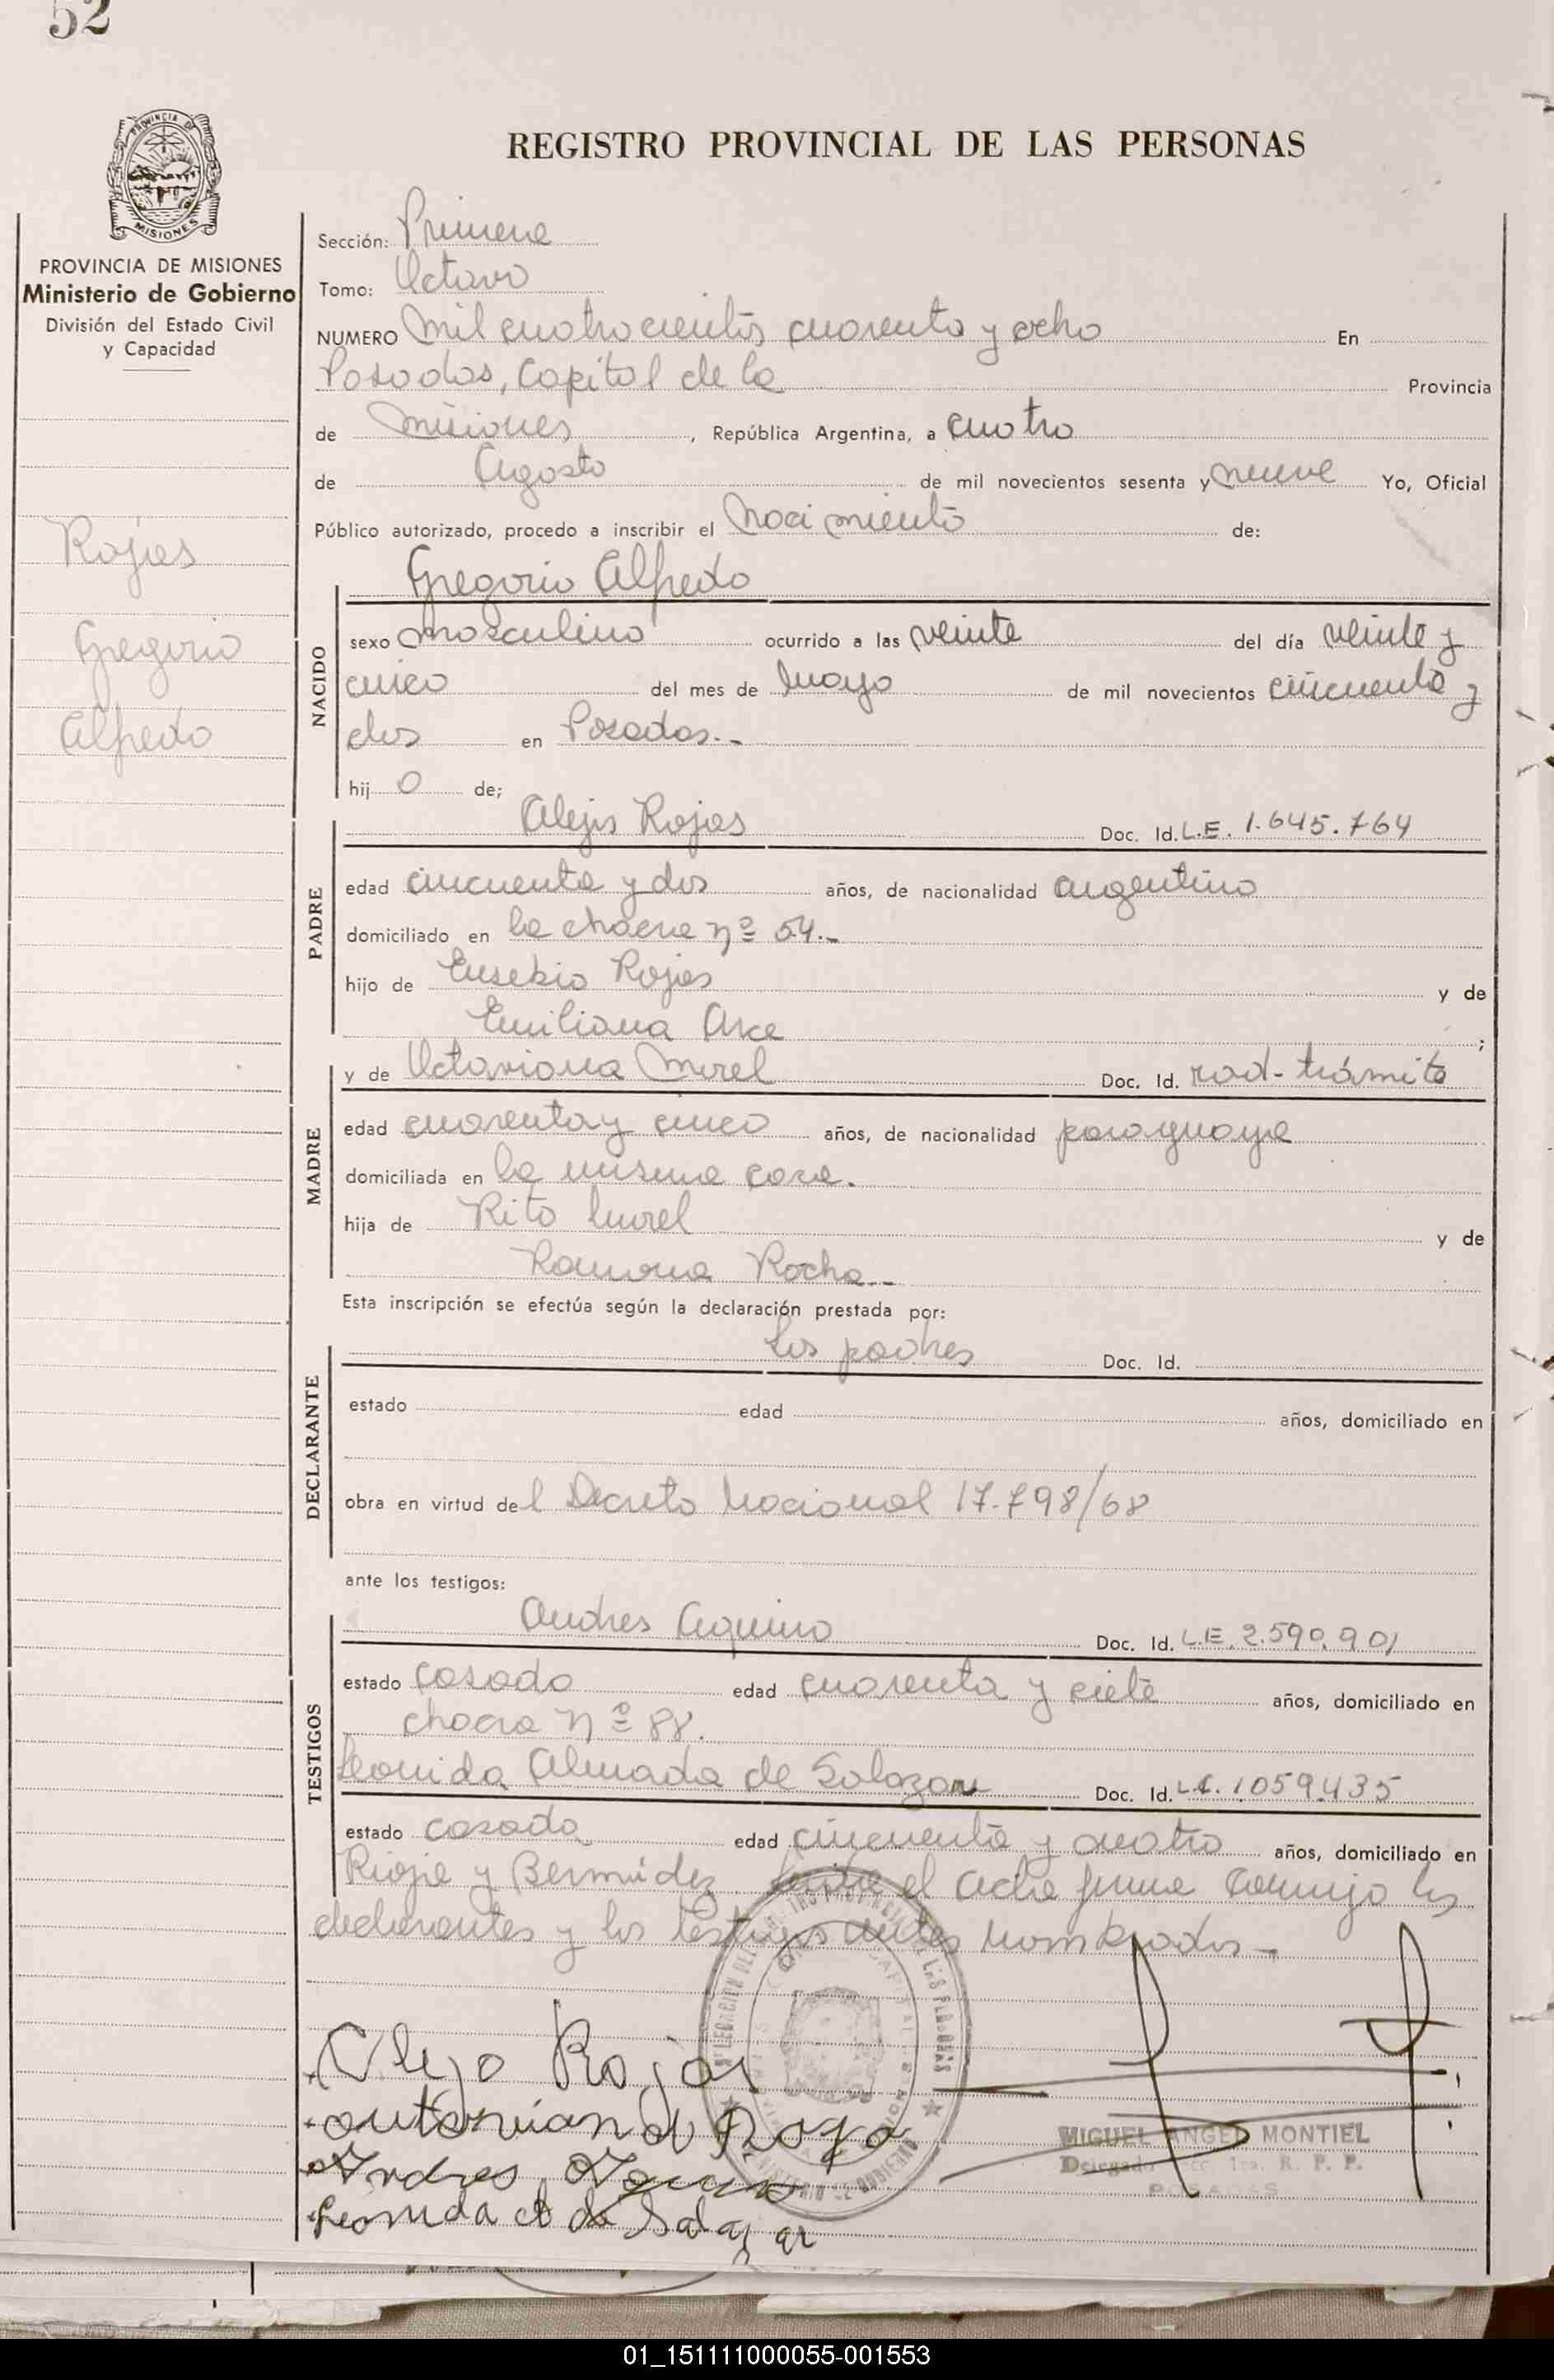 52
REGISTRO PROVINCIAL DE LAS PERSONAS
PROVINCIA DE MISIONES
Ministerio de Gobierno
División del Estado Civil
y Capacidad
Rojas
Gregorio
Alfredo
Sección: Primera
Tomo: Octavo
NUMERO Mil cuatrocientos cuarenta y ocho En
Posadas, Capital de la Provincia
de Misiones, República Argentina, a cuatro
de Agosto de mil novecientos sesenta y nueve Yo, Oficial
Público autorizado, procedo a inscribir el Nacimiento de:
NACIDO
Gregorio Alfredo
sexo masculino ocurrido a las veinte del día veinte y
cinco del mes de Mayo de mil novecientos cincuenta y
dos en Posadas.-
hijo de;
PADRE
Alejo Rojas Doc. Id. L.E. 1.645.764
edad cincuenta y dos años, de nacionalidad argentino
domiciliado en la chacra nº 54.-
hijo de Eusebio Rojas y de
Emiliana Arce ;
MADRE
y de Octaviana Morel Doc. Id. rad-trámite
edad cuarenta y cinco años, de nacionalidad paraguaya
domiciliada en la misma casa.
hija de Rito Morel y de
Ramona Rocha.-
Esta inscripción se efectúa según la declaración prestada por:
DECLARANTE
los padres Doc. Id.
estado edad años, domiciliado en
obra en virtud del Decreto Nacional 17.798/68
ante los testigos:
TESTIGOS
Andres Aquino Doc. Id. L.E. 2.590.901
estado casado edad cuarenta y siete años, domiciliado en
chacra Nº 88.
Leonida Almada de Salazar Doc. Id. L.C. 1.059.435
estado casada edad cincuenta y cuatro años, domiciliado en
Rioja y Bermúdez. el acta firma conmigo los
declarantes y los testigos antes nombrados.-
Alejo Rojas
Andres Aquino
Leonida A de Salazar
MIGUEL ANGEL MONTIEL
Delegado Secc. 1ra. R. P. P.
POSADAS
01_151111000055-001553